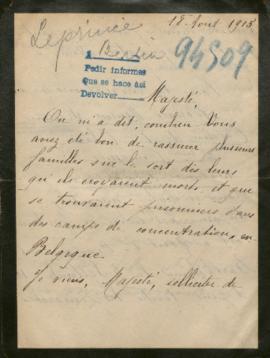 18 Aout 1915
Leprince
Berlin
94509
1
Pedir informes
que se hace así
Devolver
Majesté,
On m'a dit, combien Vous
avez été bon de rassurer plusieurs
familles sur le sort des leurs
qu'ils croyaient morts et qui
se trouvaient prisonniers dans
des camps de concentration, en
Belgique.
Je viens, Majesté, solliciter de